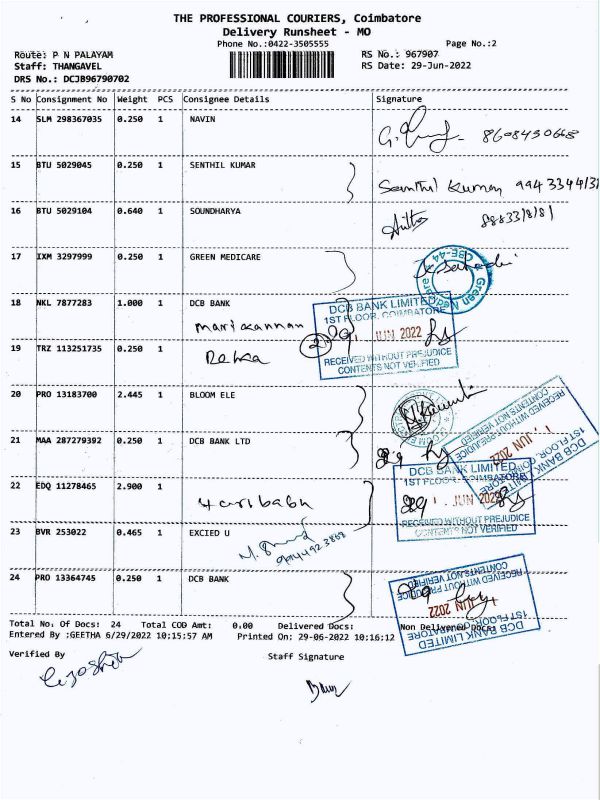 THE PROFESSIONAL COURIERS, Coimbatore
Delivery Runsheet - MO
Phone No.:0422-3505555
Page No.:2
Route: P N PALAYAM
RS No.: 967907
Staff: THANGAVEL
RS Date: 29-Jun-2022
DRS No.: DCJB96790702
S No Consignment No Weight PCS Consignee Details Signature
14 SLM 298367035 0.250 1 NAVIN
8608430668
15 BTU 5029045 0.250 1 SENTHIL KUMAR
Senthil Kumar
16 BTU 5029104 0.640 1 SOUNDHARYA
17 IXM 3297999 0.250 1 GREEN MEDICARE
18 NKL 7877283 1.000 1 DCB BANK
Mari Kannan
DCB BANK LIMITED
1ST FLOOR, COIMBATORE
29 JUN 2022
RECEIVED WITHOUT PREJUDICE
CONTENTS NOT VERIFIED
19 TRZ 113251735 0.250 1
20 PRO 13183700 2.445 1 BLOOM ELE
21 MAA 287279392 0.250 1 DCB BANK LTD
DCB BANK LIMITED
1ST FLOOR, COIMBATORE
JUN 2022
RECEIVED WITHOUT PREJUDICE
CONTENTS NOT VERIFIED
22 EDQ 11278465 2.900 1
Haribabu
DCB BANK LIMITED
1ST FLOOR, COIMBATORE
29 JUN 2022
RECEIVED WITHOUT PREJUDICE
CONTENTS NOT VERIFIED
23 BVR 253022 0.465 1 EXCIED U
24 PRO 13364745 0.250 1 DCB BANK
DCB BANK LIMITED
1ST FLOOR, COIMBATORE
JUN 2022
RECEIVED WITHOUT PREJUDICE
CONTENTS NOT VERIFIED
Total No. Of Docs: 24 Total COD Amt: 0.00 Delivered Docs: Non Delivered Docs:
Entered By :GEETHA 6/29/2022 10:15:57 AM Printed On: 29-06-2022 10:16:12
Verified By
Staff Signature